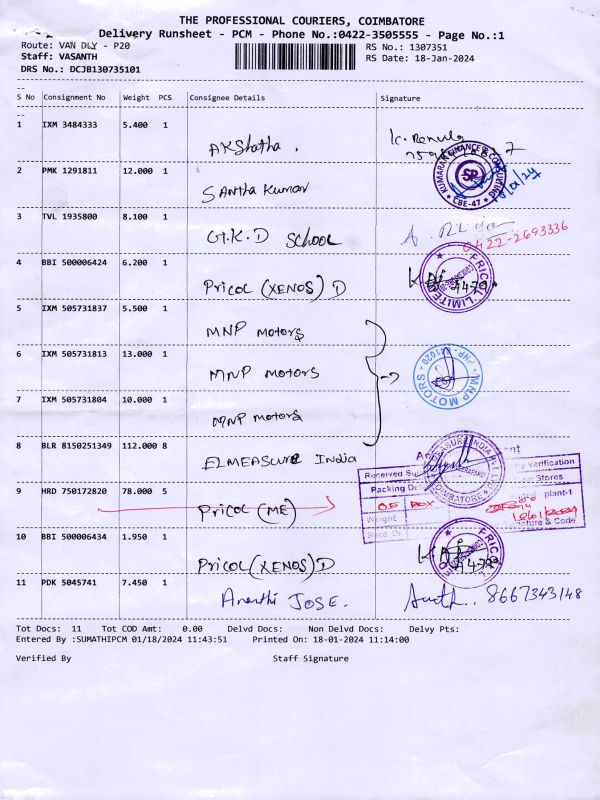 THE PROFESSIONAL COURIERS, COIMBATORE
Delivery Runsheet - PCM - Phone No.:0422-3505555 - Page No.:1
Route: VAN DLY - P20
RS No.: 1307351
Staff: VASANTH
RS Date: 18-Jan-2024
DRS No.: DCJB130735101
S No Consignment No Weight PCS Consignee Details Signature
1 IXM 3484333 5.400 1
AKShatha .
2 PMK 1291811 12.000 1
KUMARAN FINANCE & CONSULTING
SP
* CBE-47 *
18/01/24
Santha Kumar
3 TVL 1935800 8.100 1
G.K.D School
0422-2693336
4 BBI 500006424 6.200 1
PRICOL LIMITED
Pricol (XENOS) D
A479.
5 IXM 505731837 5.500 1
MNP Motors
6 IXM 505731813 13.000 1
MNP Motors
MNP MOTORS
7 IXM 505731804 10.000 1
MNP Motors
8 BLR 8150251349 112.000 8
ELMEASURE India
COIMBATORE
9 HRD 750172820 78.000 5
Pricol (ME)
Packing
Weight
05 Box
verification
Stores
plant-1
& Code
10 BBI 500006434 1.950 1
Pricol (XENOS) D
A479
11 PDK 5045741 7.450 1
JOSE.
8667343148
Tot Docs: 11 Tot COD Amt: 0.00 Delvd Docs: Non Delvd Docs: Delvy Pts:
Entered By :SUMATHIPCM 01/18/2024 11:43:51 Printed On: 18-01-2024 11:14:00
Verified By Staff Signature